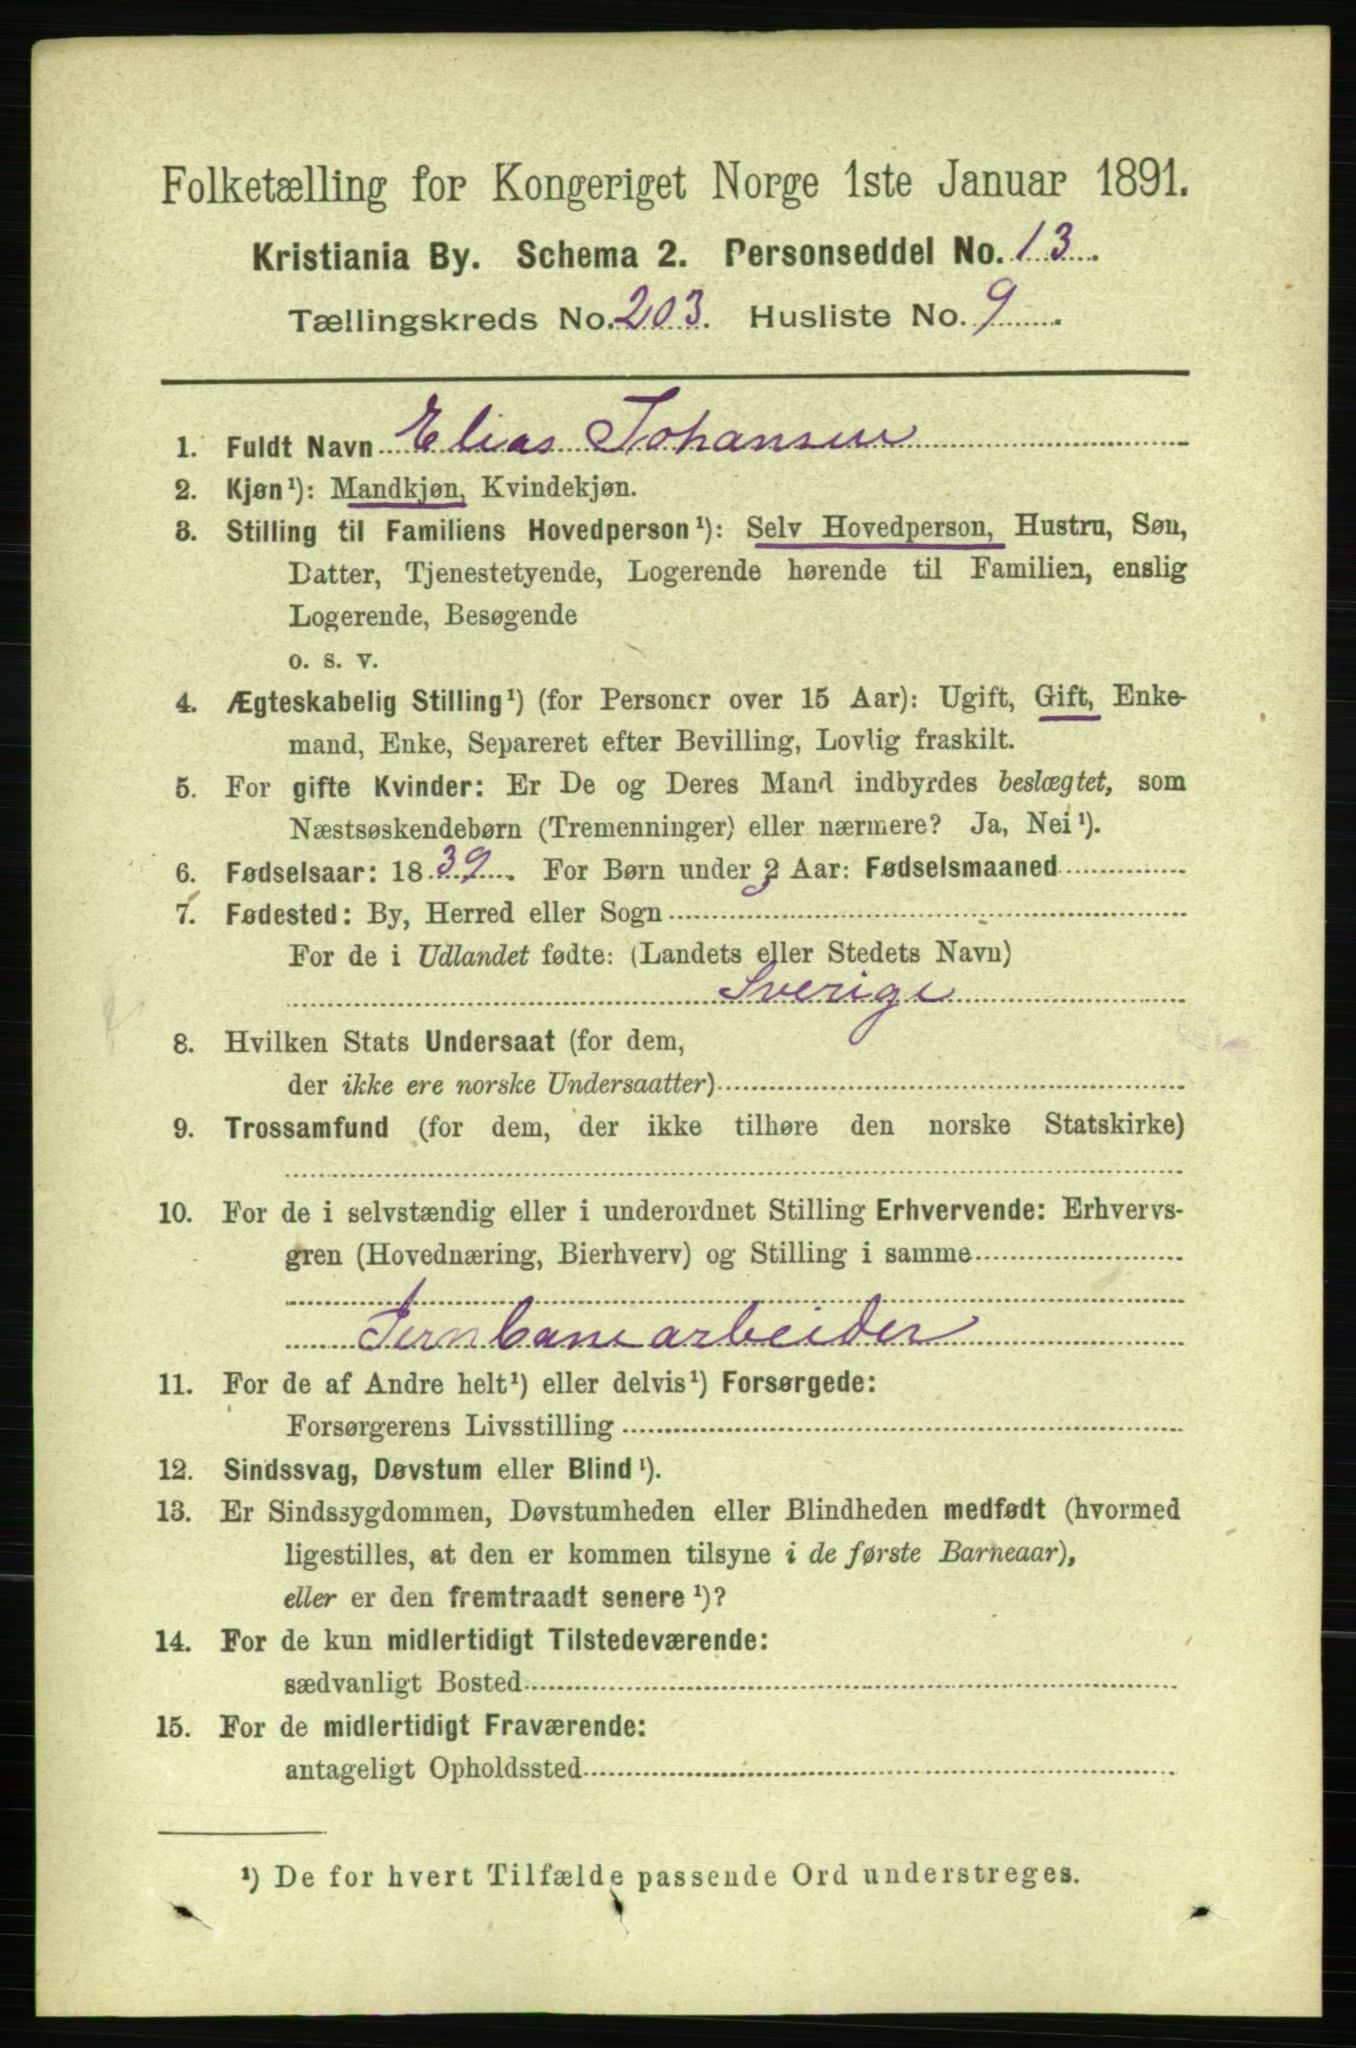 Folketælling for Kongeriget Norge 1ste Januar 1891.
Kristiania By. Schema 2. Personseddel No. 13.
Tællingskreds No. 203. Husliste No. 9.
1. Fuldt Navn Elias Johansen
2. Kjøn¹): Mandkjøn, Kvindekjøn.
3. Stilling til Familiens Hovedperson¹): Selv Hovedperson, Hustru, Søn,
Datter, Tjenestetyende, Logerende hørende til Familien, enslig
Logerende, Besøgende
o. s. v.
4. Ægteskabelig Stilling¹) (for Personer over 15 Aar): Ugift, Gift, Enke-
mand, Enke, Separeret efter Bevilling, Lovlig fraskilt.
5. For gifte Kvinder: Er De og Deres Mand indbyrdes beslægtet, som
Næstsøskendebørn (Tremenninger) eller nærmere? Ja, Nei¹).
6. Fødselsaar: 1839. For Børn under 2 Aar: Fødselsmaaned
7. Fødested: By, Herred eller Sogn
For de i Udlandet fødte: (Landets eller Stedets Navn)
Sverige
8. Hvilken Stats Undersaat (for dem,
der ikke ere norske Undersaatter)
9. Trossamfund (for dem, der ikke tilhøre den norske Statskirke)
10. For de i selvstændig eller i underordnet Stilling Erhvervende: Erhvervs-
gren (Hovednæring, Bierhverv) og Stilling i samme
Jernbanearbeider
11. For de af Andre helt¹) eller delvis¹) Forsørgede:
Forsørgerens Livsstilling
12. Sindssvag, Døvstum eller Blind¹).
13. Er Sindssygdommen, Døvstumheden eller Blindheden medfødt (hvormed
ligestilles, at den er kommen tilsyne i de første Barneaar),
eller er den fremtraadt senere¹)?
14. For de kun midlertidigt Tilstedeværende:
sædvanligt Bosted
15. For de midlertidigt Fraværende:
antageligt Opholdssted
¹) De for hvert Tilfælde passende Ord understreges.